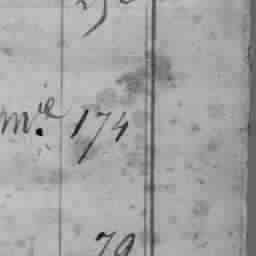 m.ie 174
79